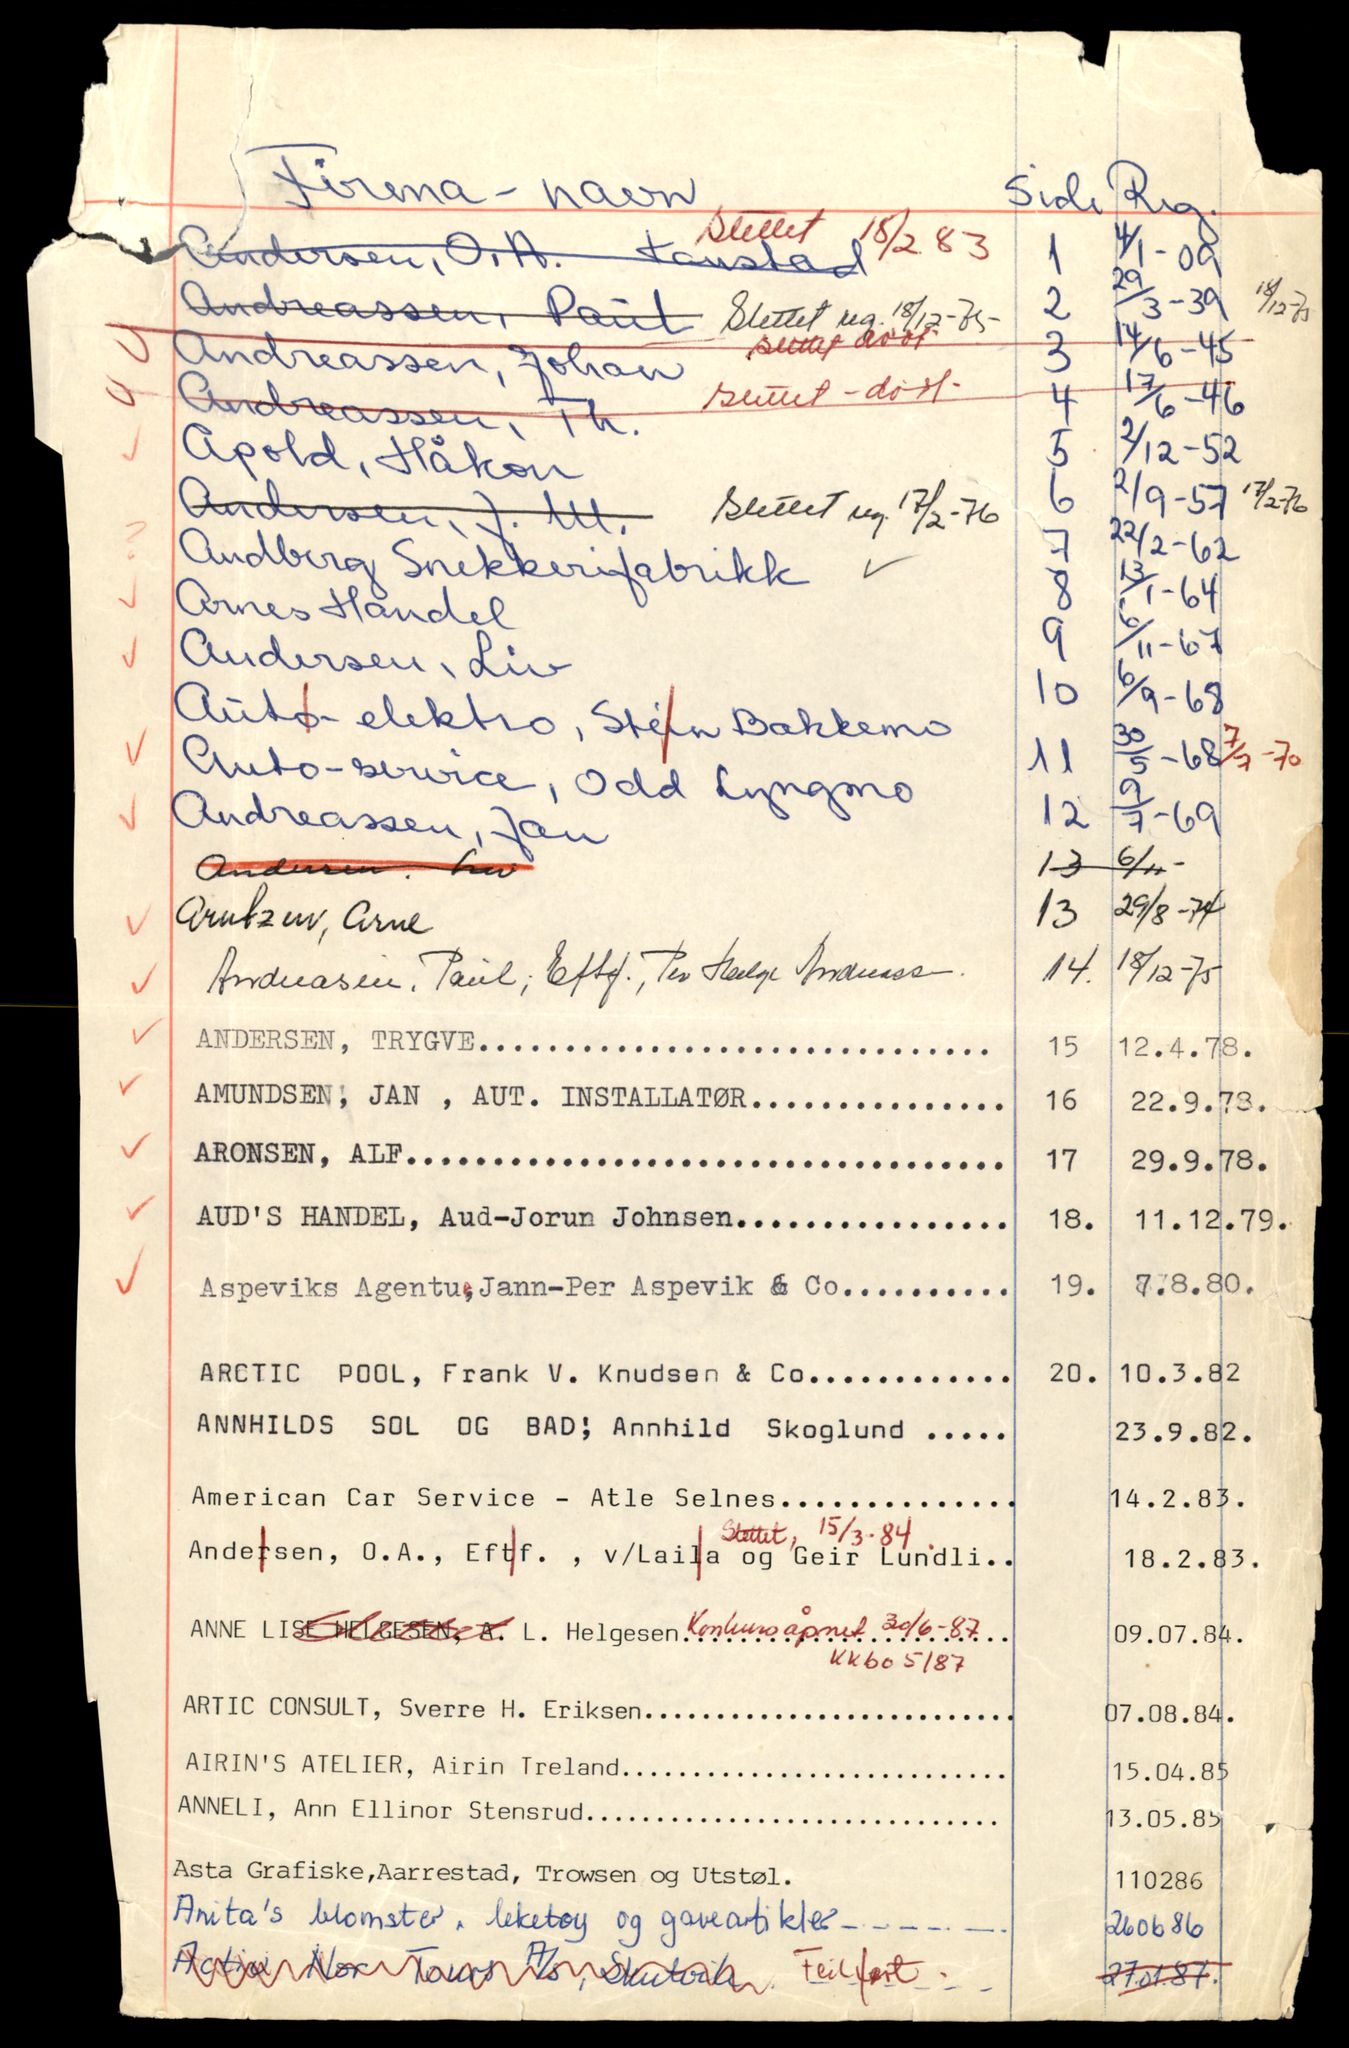 Firma-navn Side Reg.
Andersen, O.A. Tanstad slettet 18/2 83 1 4/1-09
Andreassen, Paul Slettet reg. 18/12-75- 2 29/3-39 18/12-75
Andreassen, Johan slettet død 3 14/6-45
Andreassen, Th. slettet - død- 4 17/6-46
Apold, Håkon 5 2/12-52
Andersen, J. M. Slettet reg. 17/2-76 6 2/9-57 17/2-76
Andberg Snekkerifabrikk ✓ 7 22/2-62
Arnes Handel 8 13/1-64
Andersen, Liv 9 6/11-67
Auto-elektro, Stein Bakkemo 10 6/9-68
Auto-service, Odd Lyngmo 11 30/5-68 7/7-70
Andreassen, Jan 12 9/7-69
Andersen. Liv 13 6/11-
Arntzen, Arne 13 29/8-74
Andreasen, Paul, Eftf., Per Helge Andreass 14. 18/12-75
ANDERSEN, TRYGVE.............................. 15 12.4.78.
AMUNDSEN, JAN , AUT. INSTALLATØR............... 16 22.9.78.
ARONSEN, ALF.................................. 17 29.9.78.
AUD'S HANDEL, Aud-Jorun Johnsen................ 18. 11.12.79.
Aspeviks Agentur, Jann-Per Aspevik & Co.......... 19. 7.8.80.
ARCTIC POOL, Frank V. Knudsen & Co............ 20. 10.3.82
ANNHILDS SOL OG BAD; Annhild Skoglund ..... 23.9.82.
American Car Service - Atle Selnes.............. 14.2.83.
Slettet, 15/3-84.
Andersen, O.A., Eftf. , v/Laila og Geir Lundli.. 18.2.83.
ANNE LISE HELGESEN, A. L. Helgesen Konkurs åpnet 30/6-87 09.07.84.
KKbo 5/87
ARTIC CONSULT, Sverre H. Eriksen.......................... 07.08.84.
AIRIN'S ATELIER, Airin Treland........................... 15.04.85
ANNELI, Ann Ellinor Stensrud............................. 13.05.85
Asta Grafiske,Aarrestad, Trowsen og Utstøl. 110286
Anita's blomster, leketøy og gaveartikler 260686
Action Nor Tours A/S, Skutvik Feilført. 27.01.87.